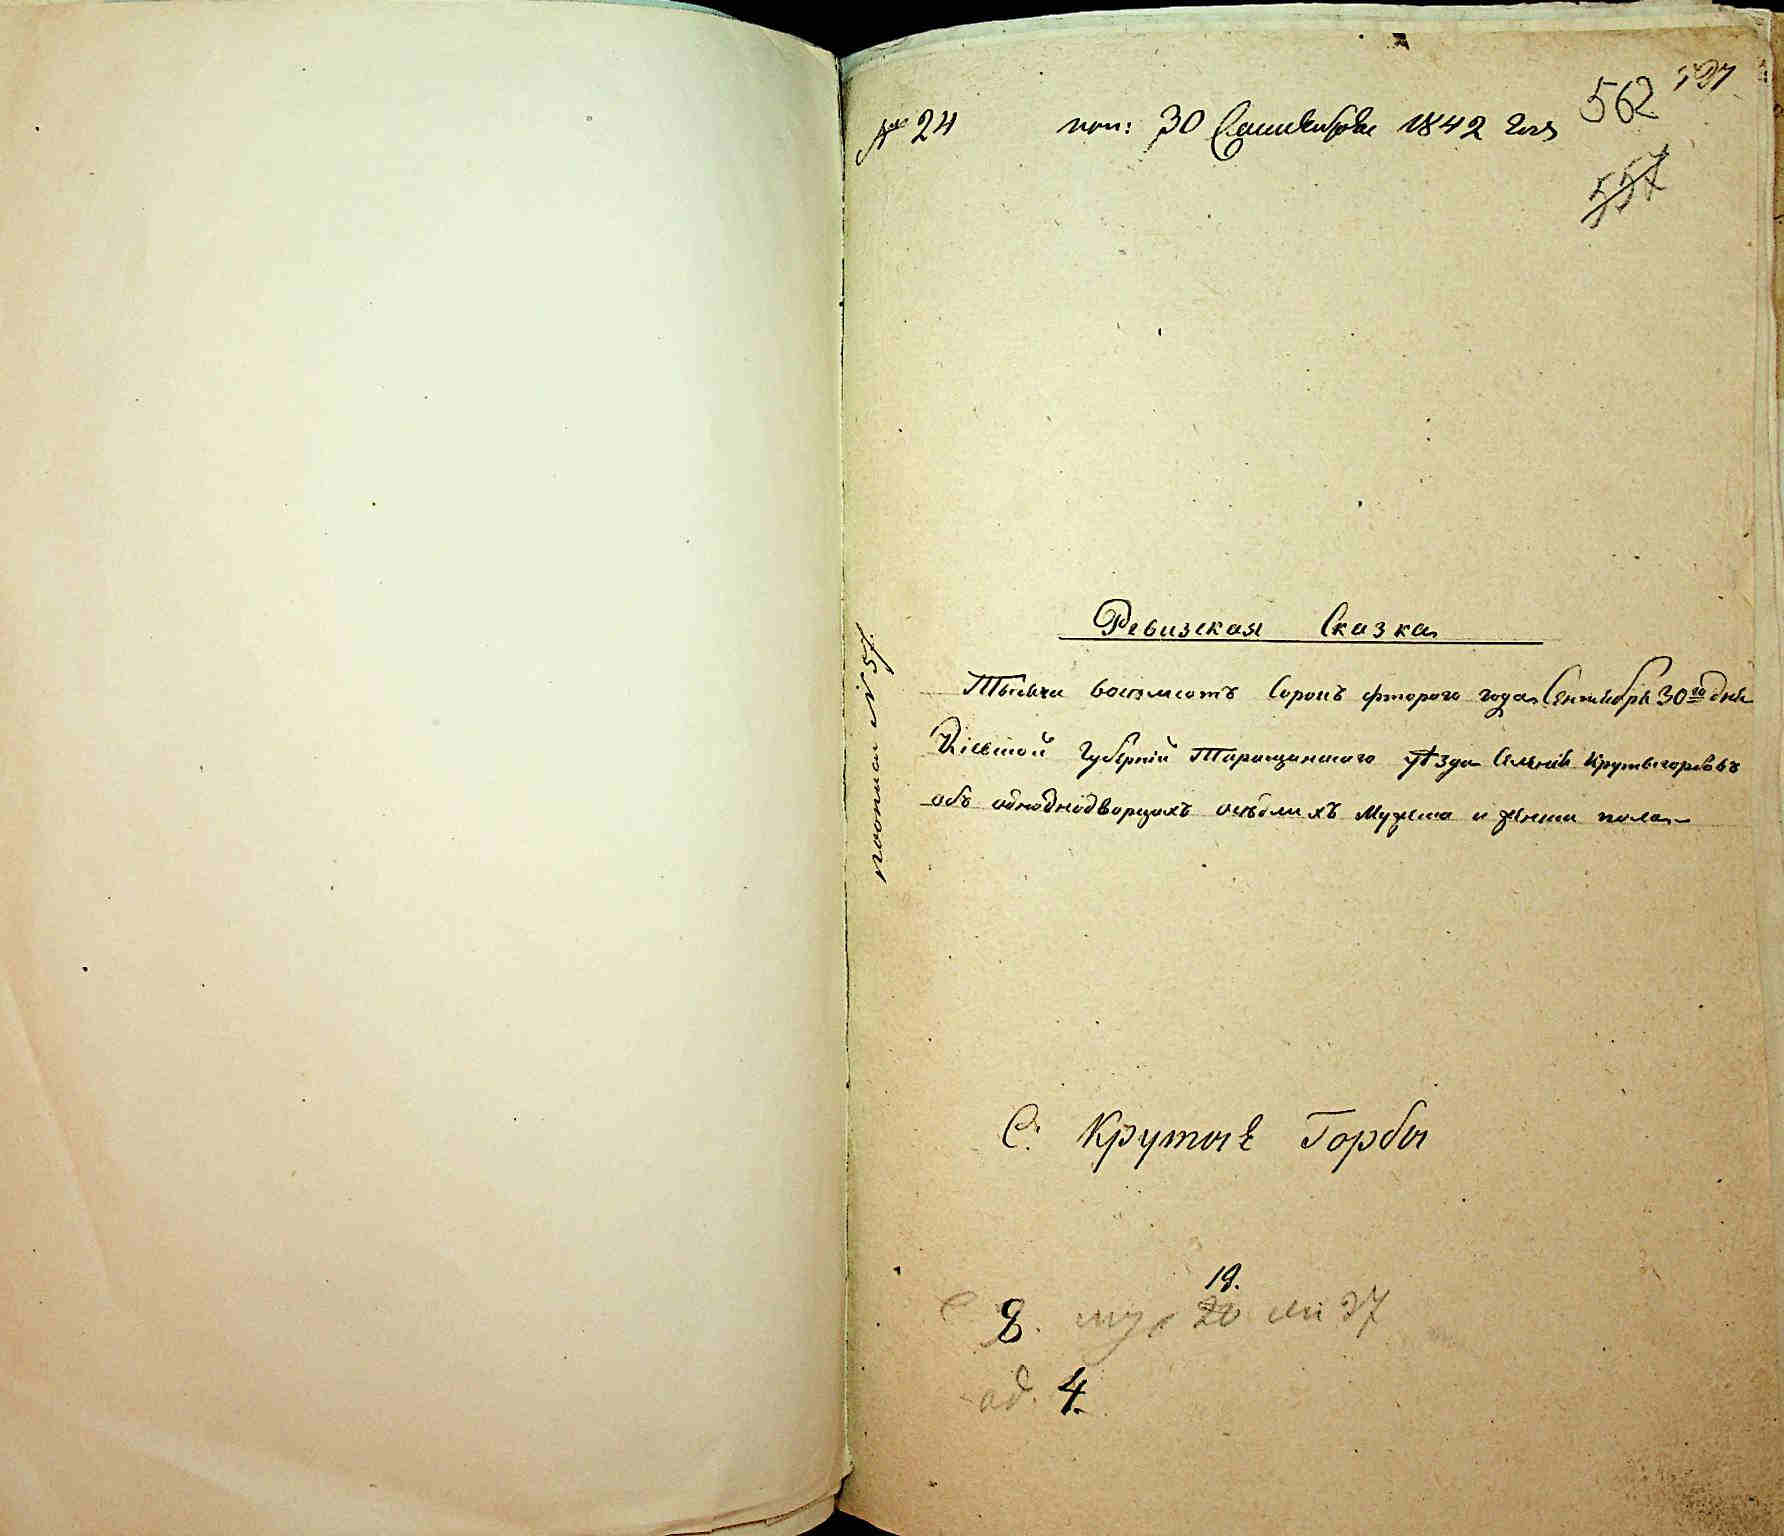 562
№ 24 пол: 30 Сентября 1842 года
557
Ревизская Сказка
Тысяча восемсотъ Сорокъ фторого года Сентября 30го дня
Кіевской Губерніи Таращанского уѣзда Селенія Крутыгорбовъ
объ однодворцахъ осѣдлихъ Мужеска и женска пола
С. Крутые Горбы
19.
8. муж 20 жен 37
од. 4.